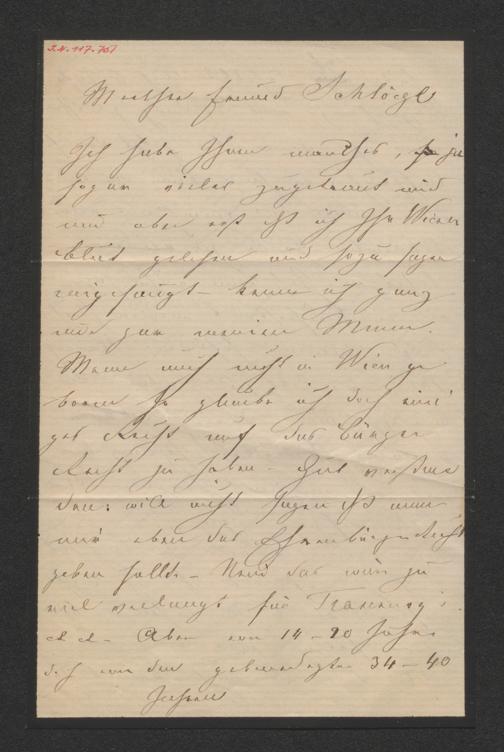 I.N. 117.701
Werther Freund Schlögl
Ich habe Ihnen manches, ja
sogar vieles zugetraut und
nun aber erst ist ich Ihr Wiener
Blut gelesen und sozu sagen
eingesaugt - kenne ich ganz
und gar meinen Mann.
Wenn auch nicht in Wien ge
boren so glaube ich doch eini
ges Recht auf das Bürger
Recht zu haben - Gut verstan
den: will nicht sagen daß man
mir eben das Ehrenbürgerrecht
geben sollte - Nein das wäre zu
viel verlangt für
Aber von 14 - 20 Jahre
d. h von den 34 - 40
Jahren